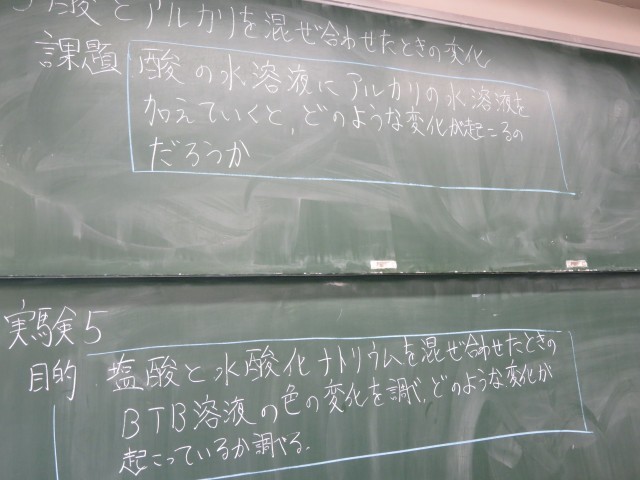 酸とアルカリを混ぜ合わせたときの変化
課題 酸の水溶液にアルカリの水溶液を
加えていくと、どのような変化が起こるの
だろうか
実験5
目的 塩酸と水酸化ナトリウムを混ぜ合わせたときの
BTB溶液の色の変化を調べ、どのような変化が
起こっているか調べる.